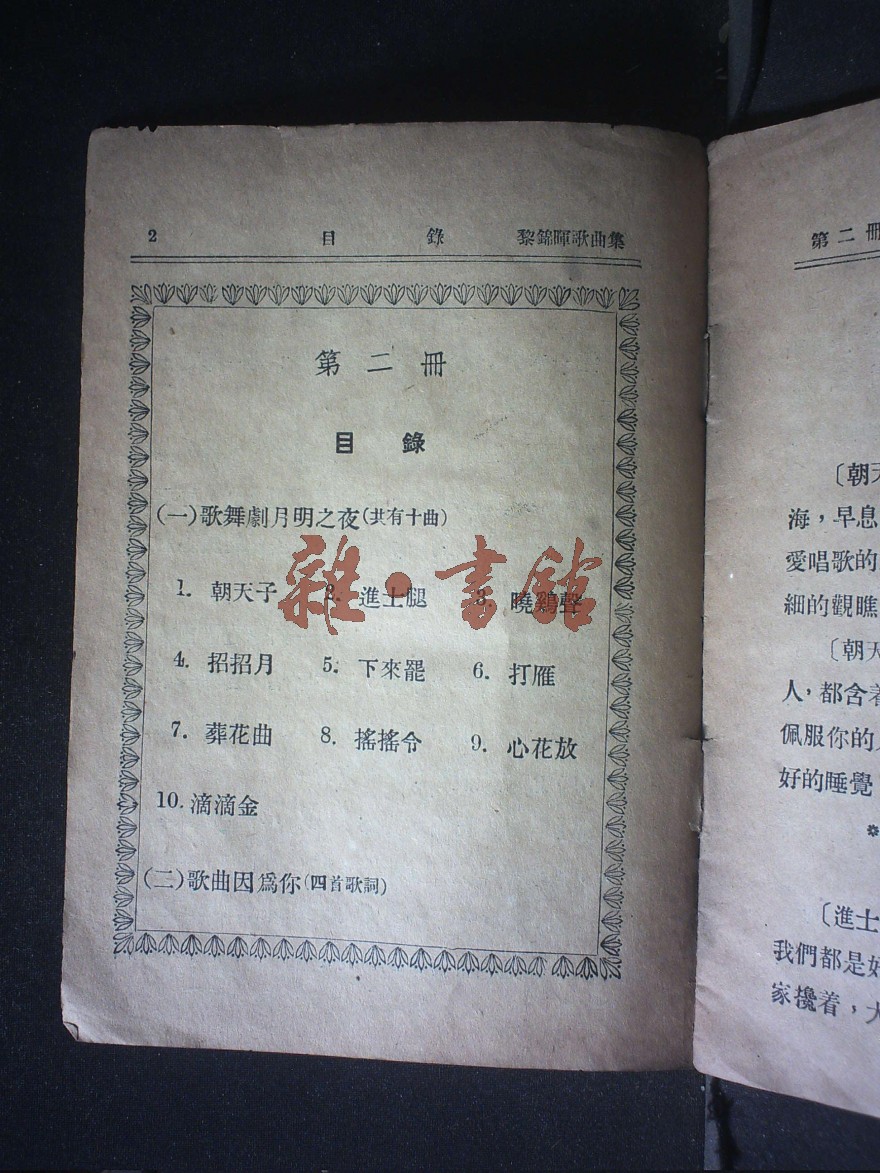 2 目 錄 黎錦暉歌曲集
第二冊
目 錄
(一)歌舞劇月明之夜(共有十曲)
1. 朝天子 2. 進士腿 3. 曉鷄聲
4. 招招月 5. 下來罷 6. 打雁
7. 葬花曲 8. 搖搖令 9. 心花放
10. 滴滴金
(二)歌曲因爲你(四首歌詞)
雜·書館
第二冊
〔朝天
海，早息
愛唱歌的
細的觀瞧
〔朝天
人，都含着
佩服你的
好的睡覺
〔進士
我們都是好
家攙着，大